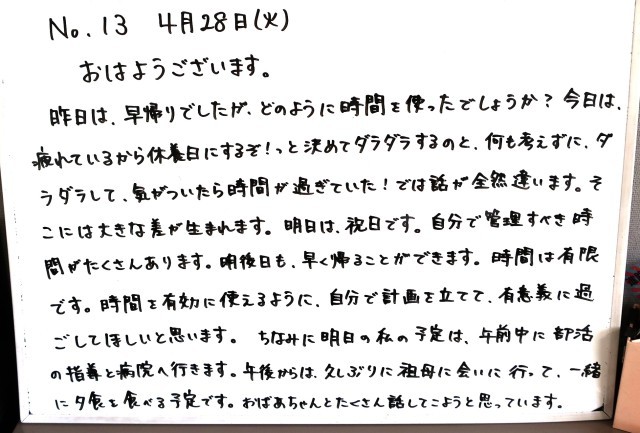 No.13 4月28日(火)
おはようございます。
昨日は、早帰りでしたが、どのように時間を使ったでしょうか？今日は、
疲れているから休養日にするぞ！っと決めてダラダラするのと、何も考えずに、ダ
ラダラして、気がついたら時間が過ぎていた！では話が全然違います。そ
こには大きな差が生まれます。明日は、祝日です。自分で管理すべき時
間がたくさんあります。明後日も、早く帰ることができます。時間は有限
です。時間を有効に使えるように、自分で計画を立てて、有意義に過
ごしてほしいと思います。ちなみに明日の私の予定は、午前中に部活
の指導と病院へ行きます。午後からは、久しぶりに祖母に会いに行って、一緒
に夕食を食べる予定です。おばあちゃんとたくさん話してこようと思っています。